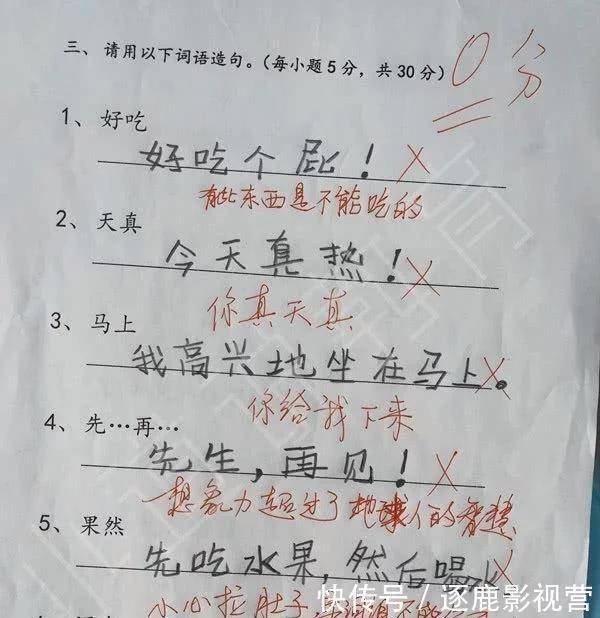 三、请用以下词语造句。(每小题5分，共30分)
0分
1、好吃
好吃个屁！
有些东西是不能吃的
2、天真
今天真热！
你真天真
3、马上
我高兴地坐在马上。
你给我下来
4、先…再…
先生，再见！
想象力超过了地球人的智慧
5、果然
先吃水果，然后喝水
小心拉肚子
快传号／逐鹿影视营